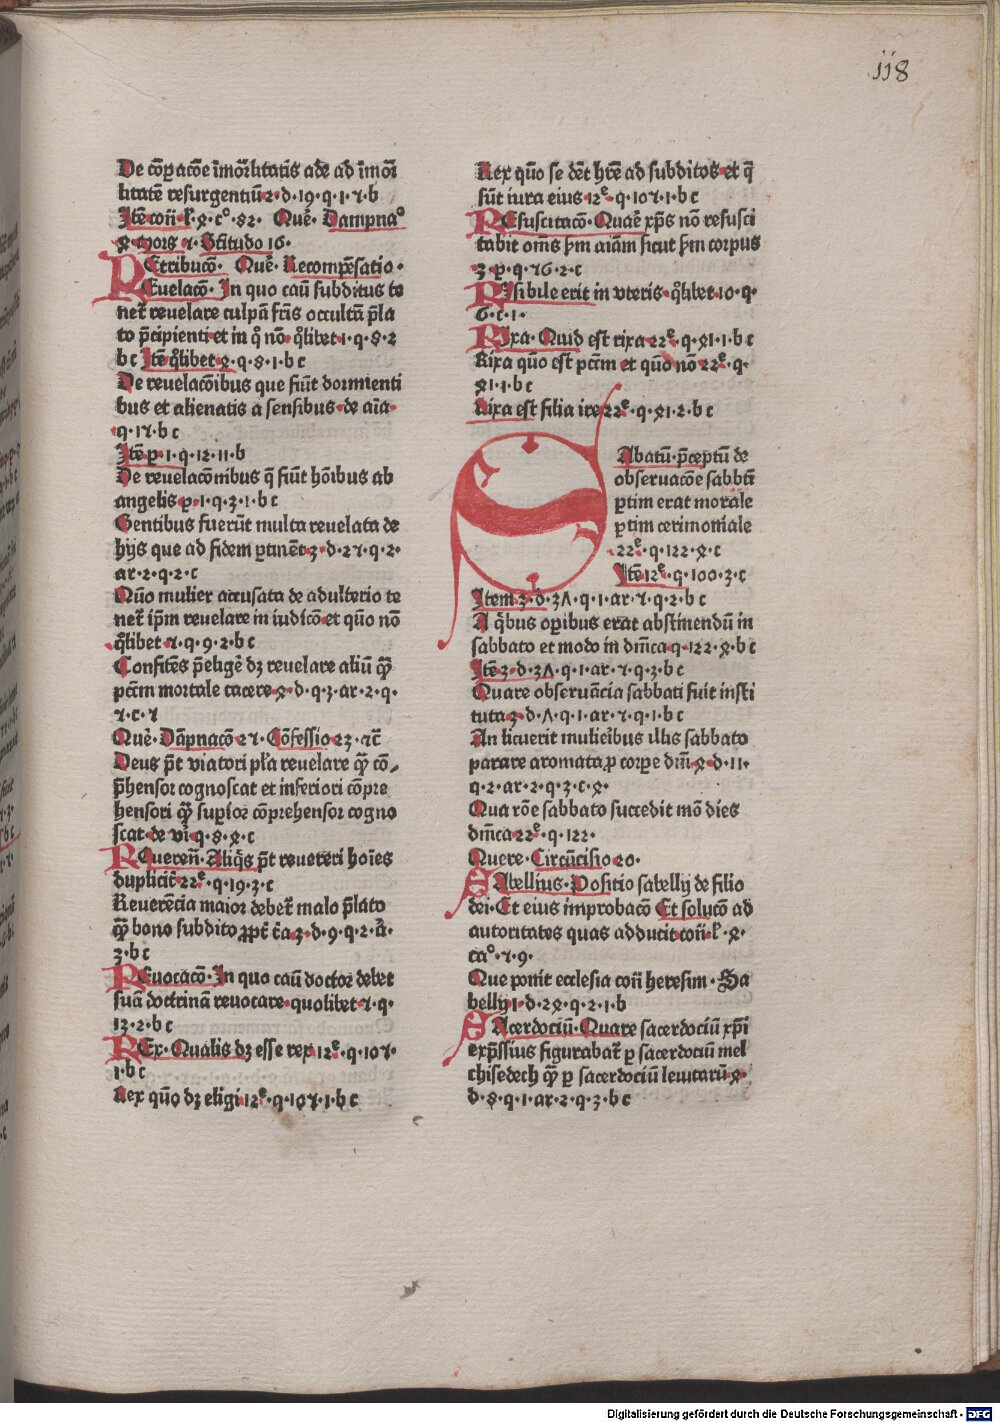 118
De cōꝑacōe īmorͣlitatis ade ad īmorͣ
litatē resurgentiū 2·d·19·q·1·7·b
Itē con̄·l̄·8·cº·82· Quē· Dampnaº
8·Mors 7·Bt̄itudo 16·
REtribucō· Quē· Recompēsatio·
REuelacō· In quo cāu subditus te
net᷑ reuelare culpā fr̄is occultā p̄la
to p̄cipienti et in q̄ nō· q̄libet·1·q·8·2
b c Itē q̄libet 8·q·8·1·b c
De reuelacōibus que fiūt dormienti
bus et alienatis a sensibus·de aīa·
q·17·b c
Itē p·1·q·12·11·b
De reuelacōnibus q̄ fiūt hōibus ab
angelis p·1·q·3·1·b c
Gentibus fuerūt multa reuelata de
hijs que ad fidem ꝑtinēt 3·d·27·q·2·
ar·2·q·2·c
Quō mulier accusata de adulterio te
net᷑ ip̄m reuelare in iudicō et quō nō
q̄libet·7·q·9·2·b c
Confitēs p̄eligē dz reuelare aliū q̄ꝫ
pctm̄ mortale tacere 8·d·q·3·ar·2·q·
7·c·7
Quē· Dāpnacō 27· Cōfessio 23·⁊c̄
Deus p̄t viatori pl̄a reuelare q̄ꝫ cō-
p̄hensor cognoscat et inferiori cōpre
hensori q̄ꝫ supīor cōprehensor cogno
scat·de vī·q·8·8·c
REueren̄· Aliq̄s p̄t reuereri hoīes
duplicit᷑ 22ᵉ·q·19·3·c
Reuerēcia maior debet᷑ malo p̄lato
q̄ꝫ bono subdito ꝓpt᷑ c̄ā 3·d·9·q·2·ā·
3·b c
REuocacō· In quo cāu doctor debet
suā doctrinā reuocare·quolibet 7·q·
13·2·b c
REx· Qualis dz esse rex 12ᵉ·q·107·
1·b c
Rex quō dz eligi 12ᵉ·q·107·1·b c
Rex quō se dēt hr̄e ad subditos et q̄
sūt iura eius 12ᵉ·q·107·1·b c
REsuscitacō· Quaē xp̄s nō resusci
tabit om̄s ẜm aīam sicut ẜm corpus
3·p·q·76·2·c
RIsibile erit in vteris·q̄libet 10·q·
6·c·1·
RIxa· Quid est rixa 22ᵉ·q·81·1·b c
Rixa quō est pctm̄ et quō nō 22ᵉ·q·
81·1·b c
Rixa est filia ire 22ᵉ·q·81·2·b c
SAbatū· p̄ceptū de
obseruacōe sabbti
ꝑtim erat morale
ꝑtim cerimoniale
22ᵉ·q·122·8·c
Itē 12ᵉ·q·100·3·c
Item 3·d·3Λ·q·1·ar·7·q·2·b c
A q̄bus oꝑibus erat abstinendū in
sabbato et modo in dn̄ica·q·122·8·b c
Itē 3·d·3Λ·q·1·ar·7·q·2·b c
Quare obseruācia sabbati fuit insti
tuta 3·d·Λ·q·1·ar·7·q·1·b c
An licuerit mulieībus illis sabbato
parare aromata ꝓ corpe dn̄i 8·d·11·
q·2·ar·2·q·3·c·8·
Qua rōe sabbato succedit mō dies
dn̄ica 22ᵉ·q·122·
Quere·Circūcisio 20·
SAbellius· Positio sabellij de filio
dei·Et eius improbacō Et solucō ad
autoritates quas adducit con̄·l̄·8·
caº·7·9·
Que ponit ecclesia con̄ heresim·Sa
belly 1·d·28·q·2·1·b
SAcerdociū·Quare sacerdociū xp̄i
exp̄ssius figurabat᷑ ꝑ sacerdociū mel
chisedech q̄ꝫ ꝑ sacerdociū leuitarū 8·
d·8·q·1·ar·2·q·3·b c
Digitalisierung gefördert durch die Deutsche Forschungsgemeinschaft - DFG